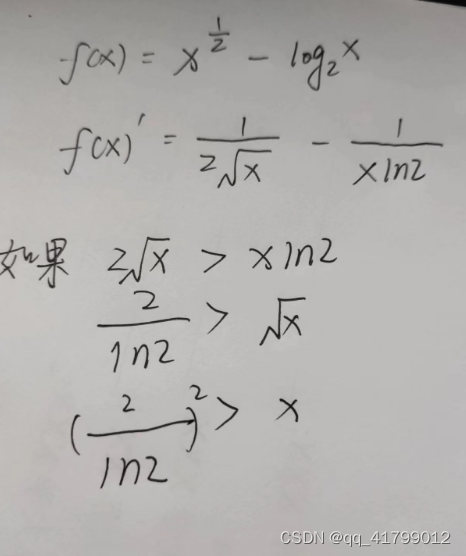 f(x) = x^{\frac{1}{2}} - log₂x
f(x)' = \frac{1}{2√x} - \frac{1}{xln2}
如果 2√x > xln2
\frac{2}{ln2} > √x
(\frac{2}{ln2})² > x
CSDN @qq_41799012